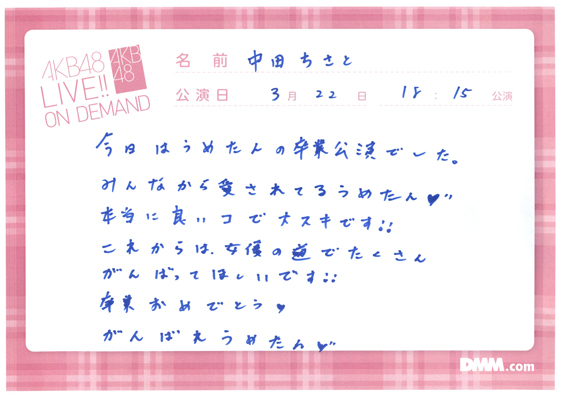 AKB48
LIVE!!
ON DEMAND
AKB
48
名前 中田ちさと
公演日 3月22日 18:15公演
今日はうめたんの卒業公演でした。
みんなから愛されてるうめたん♥〃
本当に良いコで大スキです!!
これからは、女優の道でたくさん
がんばってほしいです!!
卒業おめでとう♥
がんばえうめたん♥〃
DMM.com